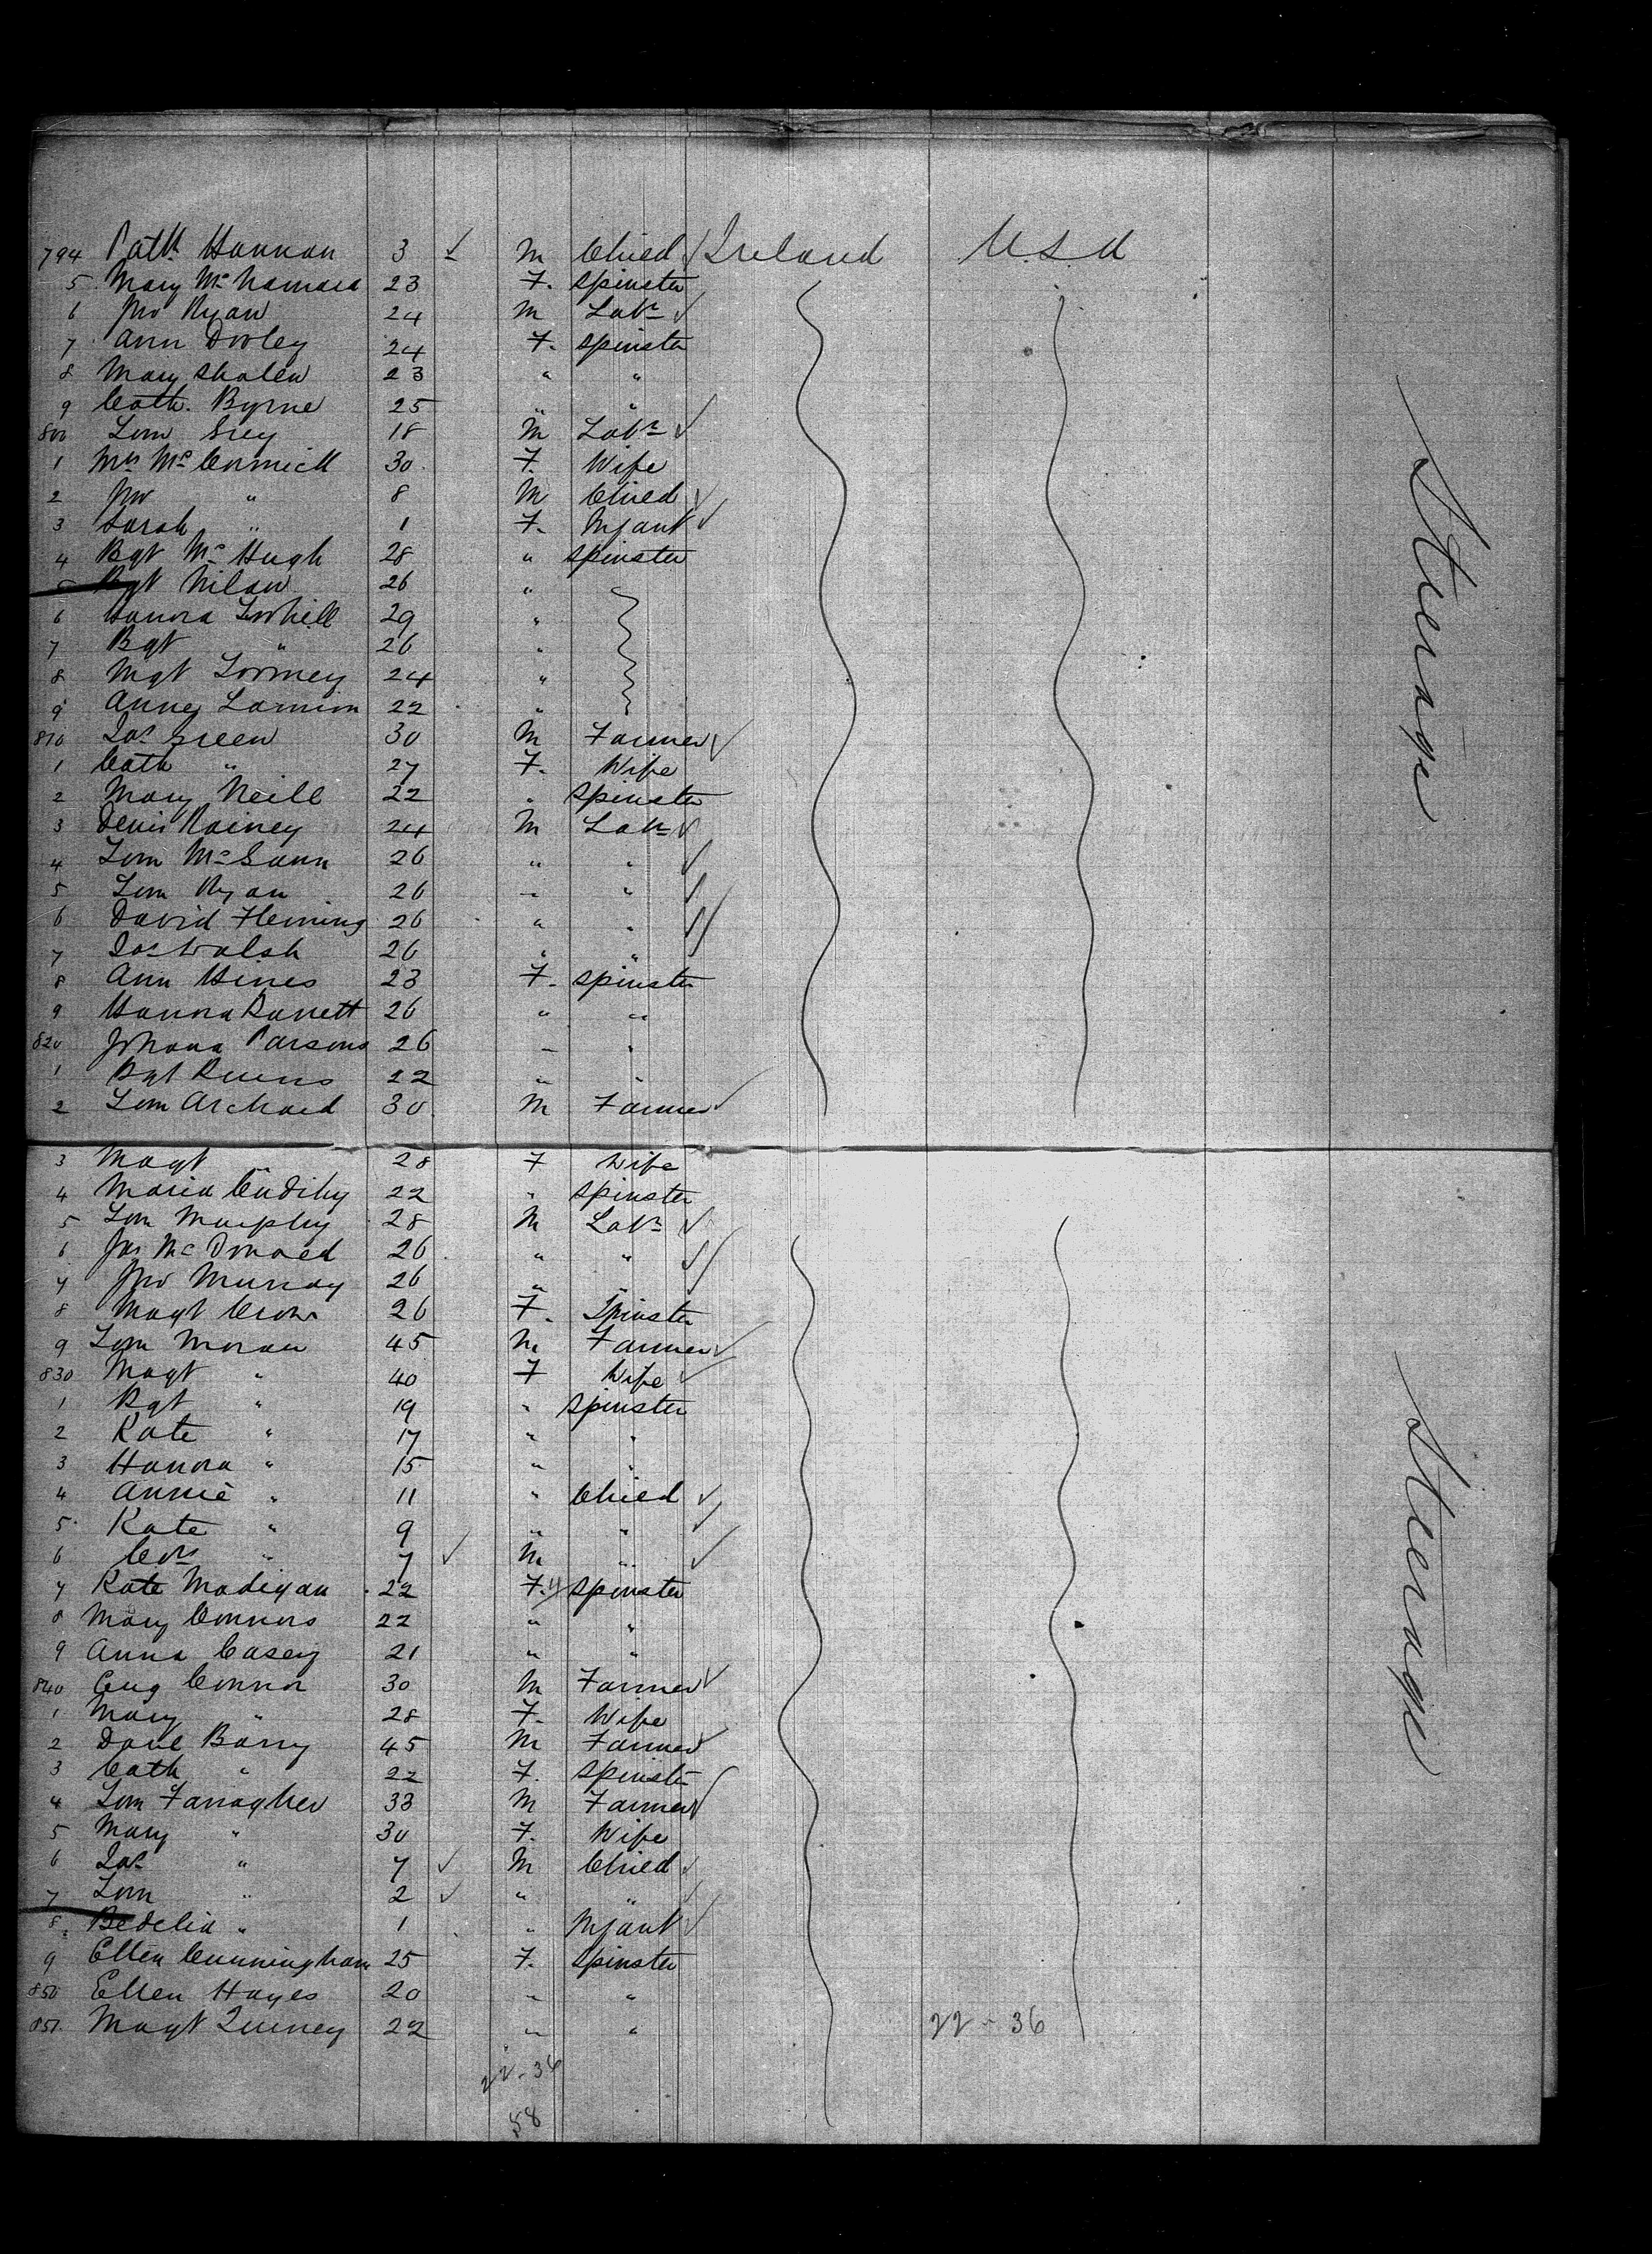 794 Patk Hannan 3 M Child Ireland U.S.A
5 Mary McNamara 23 F. Spinster
6 Jno Ryan 24 M Labr
7 Ann Dooley 24 F. Spinster
8 Mary 23 " "
9 Cath. Byrne 25 " "
800 Tom 18 M Labr
1 Mrs McCormick 30 F. Wife
2 Jno " 8 M Child
3 Sarah " 1 F. Infant
4 Bgt McHugh 28 " Spinster
5 Bgt Nilan 26 "
6 Hanora 29 "
7 Bgt " 26 "
8 Mgt 24 "
9 Anne 22 "
810 Jas Green 30 M Farmer
1 Cath " 27 F. Wife
2 Mary Neill 22 " Spinster
3 Denis Rainey 24 M Labr
4 Tom 26 " "
5 Tom Ryan 26 " "
6 David Fleming 26 " "
7 Jas Walsh 26 " "
8 Ann Hines 23 F. Spinster
9 Hanora 26 " "
820 Johana Parsons 26 " "
1 Bgt 22 " "
2 Tom 30 M Farmer
3 Magt " 28 F Wife
4 Maria 22 " Spinster
5 Tom Murphy 28 M Labr
6 Jas McDonald 26 " "
7 Jno Murray 26 " "
8 Magt 26 F. Spinster
9 Tom Moran 45 M Farmer
830 Magt " 40 F Wife
1 Bgt " 19 " Spinster
2 Kate " 17 " "
3 Hanora " 15 " "
4 Annie " 11 " Child
5 Kate " 9 " "
6 " 7 M "
7 Kate Madigan 22 F. Spinster
8 Mary Connors 22 " "
9 Anna Casey 21 " "
840 Connor 30 M Farmer
1 Mary " 28 F. Wife
2 Barry 45 M Farmer
3 Cath " 22 F. Spinster
4 Tom Fanagher 33 M Farmer
5 Mary " 30 F. Wife
6 Jas " 7 M Child
7 Tom " 2 " "
8 Bedelia " 1 " Infant
9 Ellen Cunningham 25 F. Spinster
850 Ellen Hayes 20 " "
851 Magt 22 " " 22 - 36
22 - 36
58
Steerage
Steerage